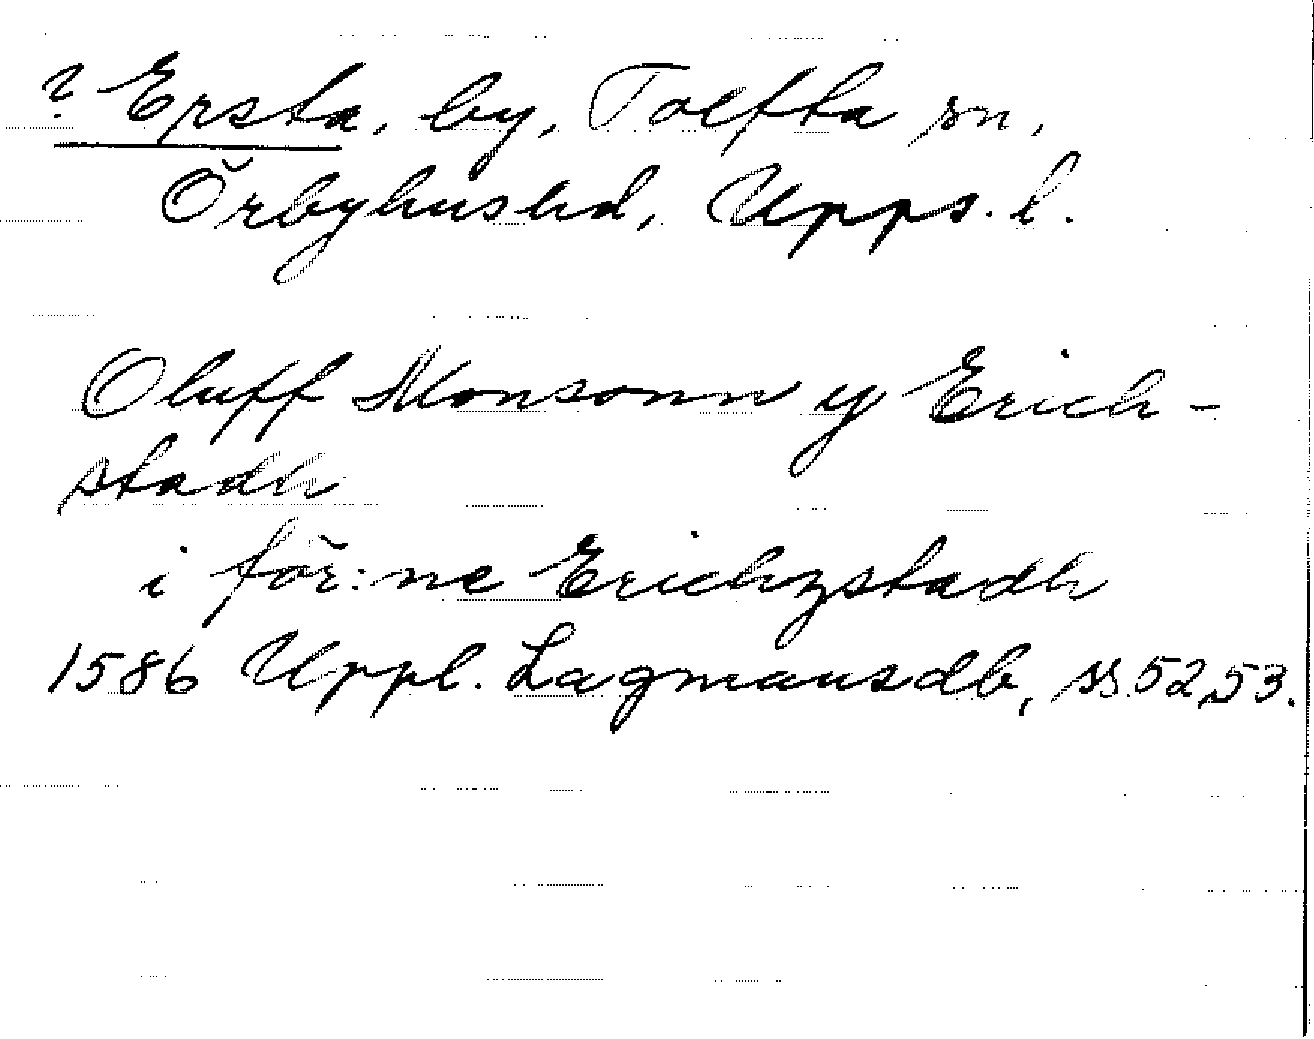 ? Ersta, by, Tolfta sn,
Örbyhus hd, Upps. l.
Oluff Monsonn y Erich-
stadh
i för:ne Erichzstadh
1586 Uppl. Lagmansdb, ss. 52, 53.